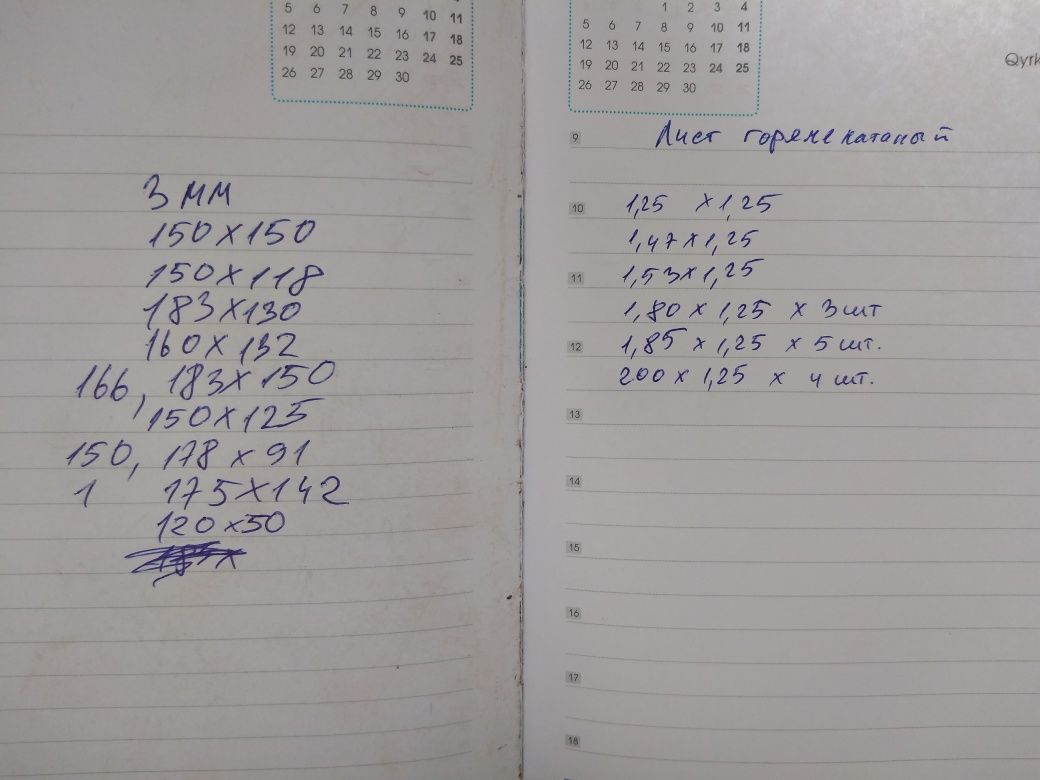 4
5 6 7 8 9 10 11
12 13 14 15 16 17 18
19 20 21 22 23 24 25
26 27 28 29 30
3 мм
150×150
150×118
183×130
160×132
166, 183×150
150×125
150, 178×91
1 175×142
120×50
1 2 3 4
5 6 7 8 9 10 11
12 13 14 15 16 17 18
19 20 21 22 23 24 25
26 27 28 29 30
Qyrk
9 Лист горячекатаный
10 1,25 ×1,25
1,47×1,25
11 1,53×1,25
1,80 × 1,25 × 3 шт
12 1,85 × 1,25 × 5 шт.
200 × 1,25 × 4 шт.
13
14
15
16
17
18